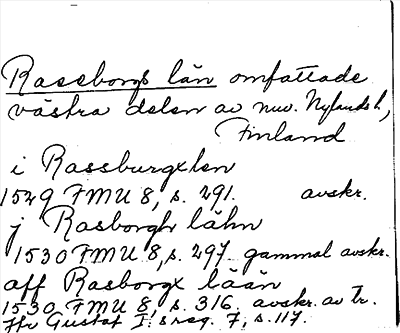 Raseborgs län omfattade
västra delen av nuv. Nylands l.,
Finland
i Rassburgxlen
1529 FMU 8, s. 291. avskr.
j Rasborgh lähn
1530 FMU 8, s. 297. gammal avskr.
aff Rasborgx lään
1530 FMU 8, s. 316. avskr. av Tr.
Jfr Gustaf I:s reg. 7, s. 117.